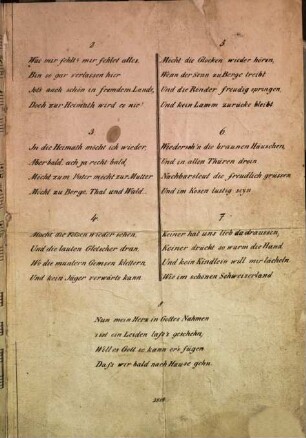 2
Was mir fehlt? mir fehlet alles,
Bin so gar verlassen hier
Ists auch schön in fremdem Lande,
Doch zur Heimath wird es nie!
3
In die Heimath möcht ich wieder,
Aber bald, ach ja recht bald,
Möcht zum Vater möcht zur Mutter
Möcht zu Berge, Thal und Wald.
4
Möcht die Felsen wieder sehen,
Und die lauten Gletscher dran,
Wo die muntern Gemsen klettern,
Und kein Jäger vorwärts kann
5
Möcht die Glocken wieder hören,
Wenn der Senn zu Berge treibt
Und die Rinder freudig springen,
Und kein Lamm zurücke bleibt
6
Wiederseh'n die braunen Häuschen,
Und in allen Thüren drein
Nachbarsleut die freudlich grüssen
Und im Kosen lustig seyn
7
Keiner hat uns lieb da draussen,
Keiner drückt so warm die Hand
Und kein Kindlein will mir lächeln
Wie im schönen Schweizerland
Nun mein Herz in Gottes Nahmen
s'ist ein Leiden lass's geschehn,
Will es Gott so kann er's fügen
Dass wir bald nach Hause gehn.